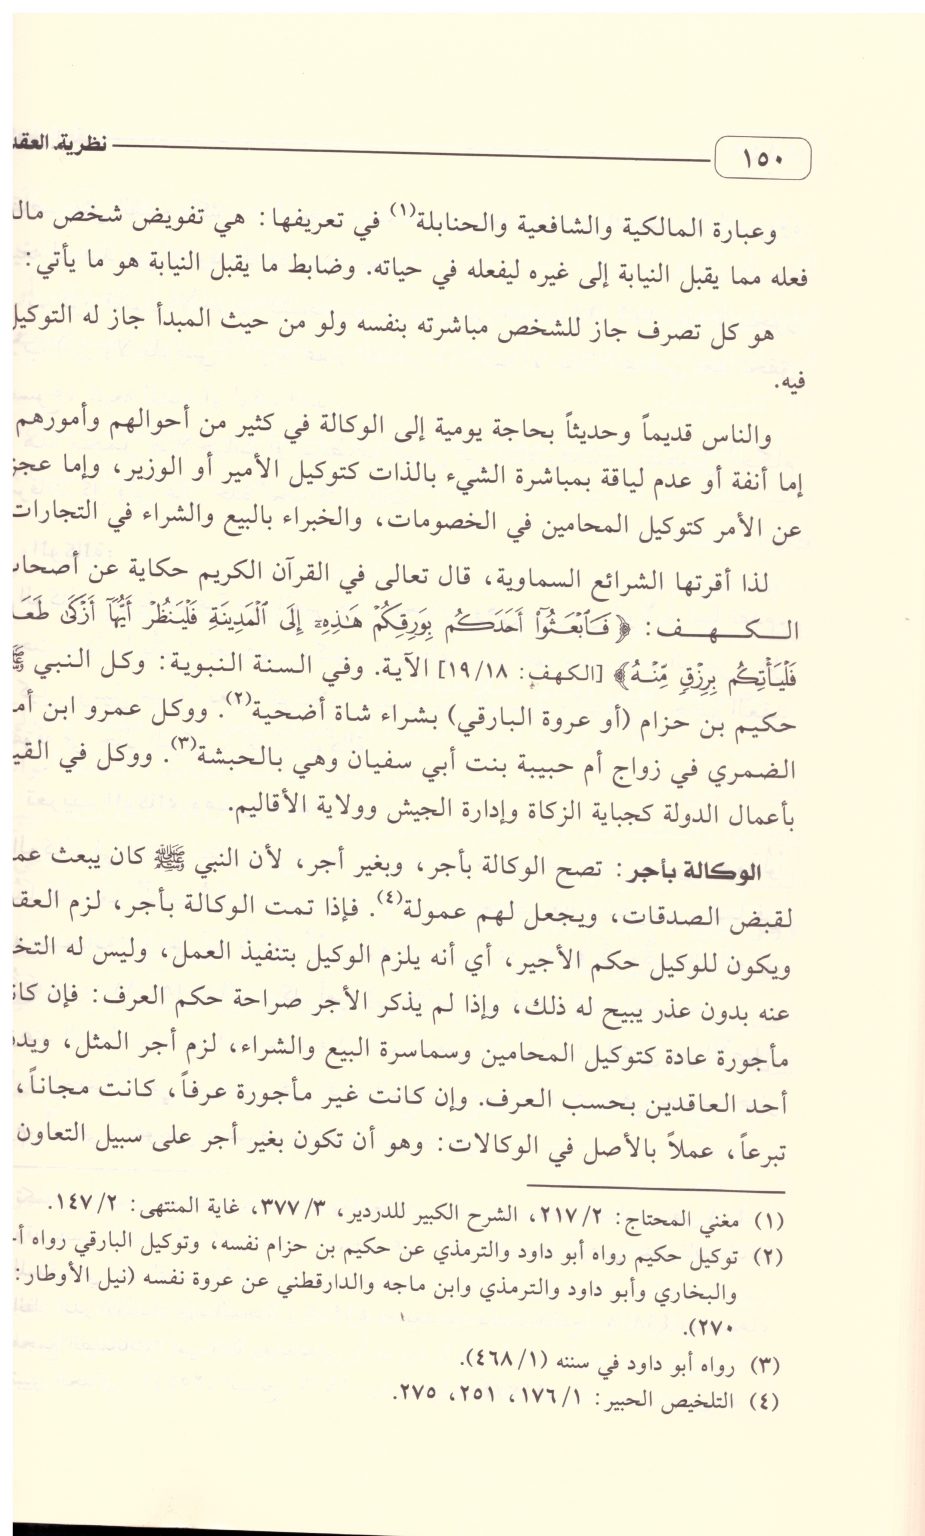 ١٥٠ نظرية العقد
وعبارة المالكية والشافعية والحنابلة(١) في تعريفها: هي تفويض شخص ما
فعله مما يقبل النيابة إلى غيره ليفعله في حياته. وضابط ما يقبل النيابة هو ما يأتي:
هو كل تصرف جاز للشخص مباشرته بنفسه ولو من حيث المبدأ جاز له التوكيل
فيه.
والناس قديماً وحديثاً بحاجة يومية إلى الوكالة في كثير من أحوالهم وأمورهم
إما أنفة أو عدم لياقة بمباشرة الشيء بالذات كتوكيل الأمير أو الوزير، وإما عجز
عن الأمر كتوكيل المحامين في الخصومات، والخبراء بالبيع والشراء في التجارات
لذا أقرتها الشرائع السماوية، قال تعالى في القرآن الكريم حكاية عن أصحا
الـكـهـف: ﴿فَٱبْعَثُوٓا۟ أَحَدَكُم بِوَرِقِكُمْ هَٰذِهِۦٓ إِلَى ٱلْمَدِينَةِ فَلْيَنظُرْ أَيُّهَآ أَزْكَىٰ طَعَـ
فَلْيَأْتِكُم بِرِزْقٍ مِّنْهُ﴾ [الكهف: ١٨/١٩] الآية. وفي السنة النبوية: وكل النبي ﷺ
حكيم بن حزام (أو عروة البارقي) بشراء شاة أضحية(٢). ووكل عمرو ابن أم
الضمري في زواج أم حبيبة بنت أبي سفيان وهي بالحبشة(٣). ووكل في القي
بأعمال الدولة كجباية الزكاة وإدارة الجيش وولاية الأقاليم.
الوكالة بأجر: تصح الوكالة بأجر، وبغير أجر، لأن النبي ﷺ كان يبعث عم
لقبض الصدقات، ويجعل لهم عمولة(٤). فإذا تمت الوكالة بأجر، لزم العقد
ويكون للوكيل حكم الأجير، أي أنه يلزم الوكيل بتنفيذ العمل، وليس له التخ
عنه بدون عذر يبيح له ذلك، وإذا لم يذكر الأجر صراحة حكم العرف: فإن كان
مأجورة عادة كتوكيل المحامين وسماسرة البيع والشراء، لزم أجر المثل، ويد
أحد العاقدين بحسب العرف. وإن كانت غير مأجورة عرفاً، كانت مجاناً،
تبرعاً، عملاً بالأصل في الوكالات: وهو أن تكون بغير أجر على سبيل التعاون
(١) مغني المحتاج: ٢/٢١٧، الشرح الكبير للدردير، ٣/٣٧٧، غاية المنتهى: ٢/١٤٧.
(٢) توكيل حكيم رواه أبو داود والترمذي عن حكيم بن حزام نفسه، وتوكيل البارقي رواه أ
والبخاري وأبو داود والترمذي وابن ماجه والدارقطني عن عروة نفسه (نيل الأوطار:
٢٧٠).
(٣) رواه أبو داود في سننه (١/٤٦٨).
(٤) التلخيص الحبير: ١/١٧٦، ٢٥١، ٢٧٥.